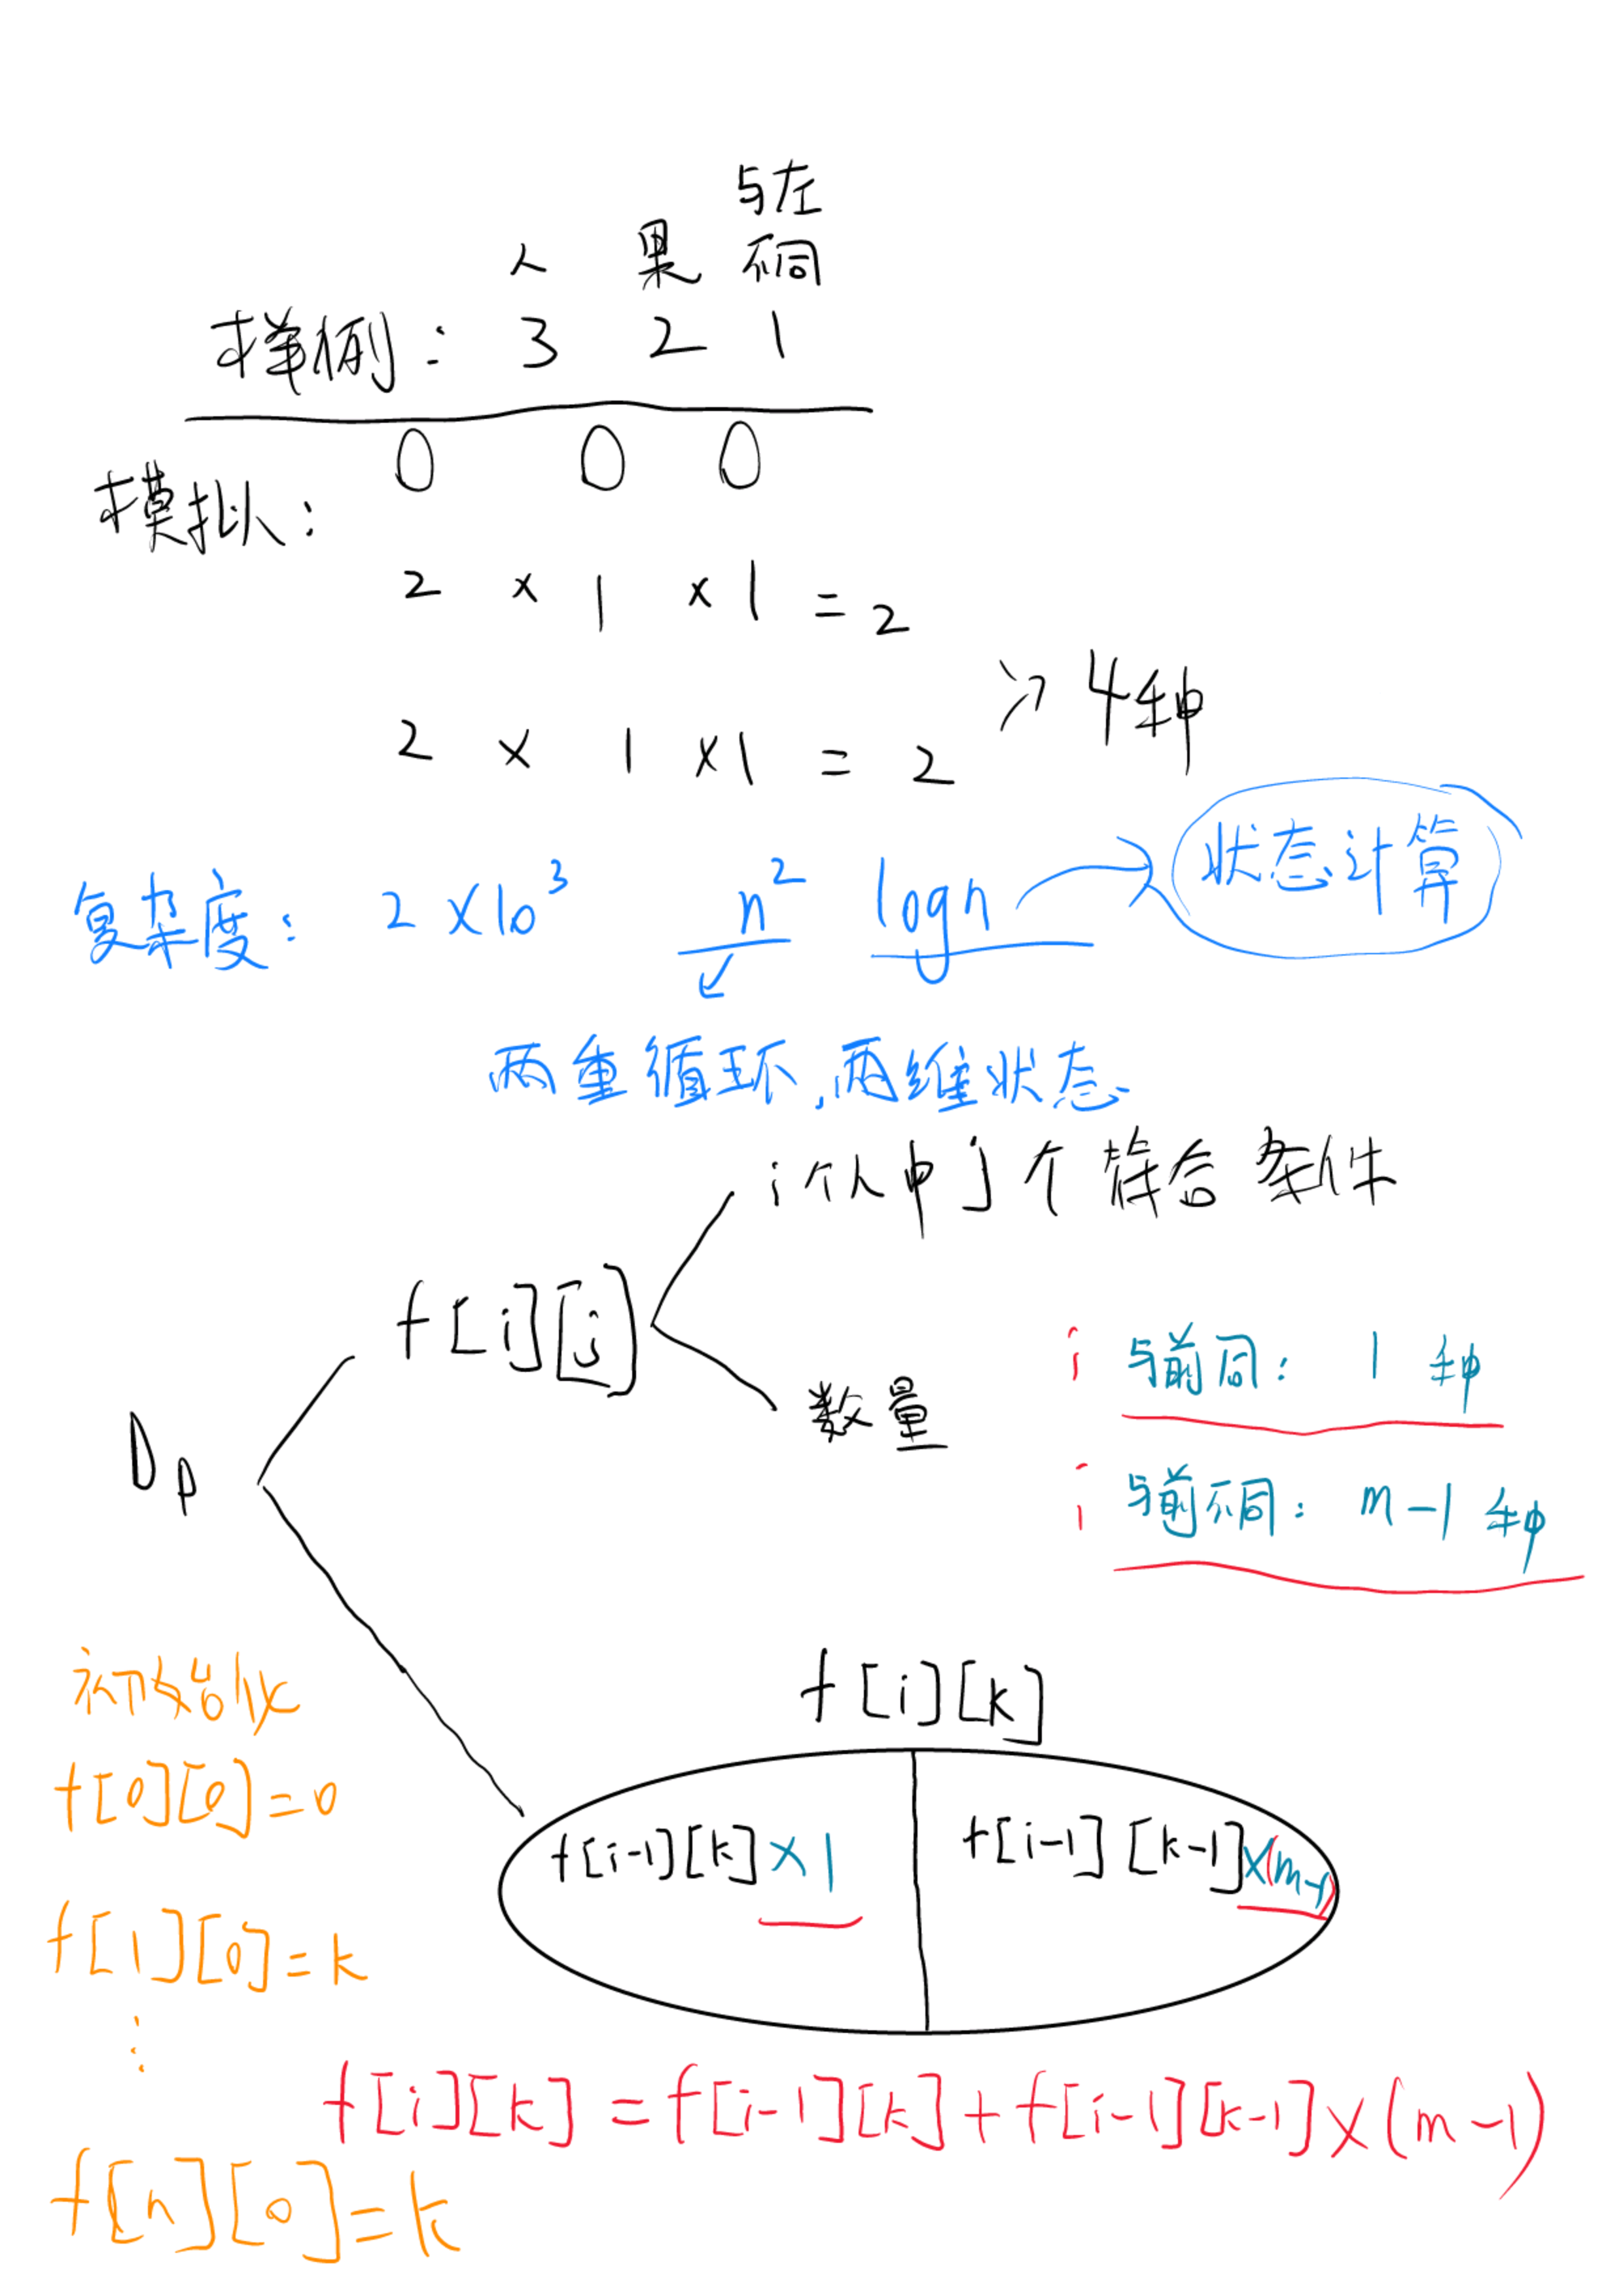 与左
人 果 不同
样例： 3 2 1
0 0 0
模拟：
2 × 1 × 1 = 2
4种
2 × 1 × 1 = 2
复杂度： 2×10³ n² logn 状态计算
两重循环，两维状态
i个人中j个符合条件
f[i][j]
i 与前同： 1 种
数量
Dp
i 与前不同： m-1 种
初始化
f[i][k]
f[0][0]=0
f[i-1][k]×1 f[i-1][k-1]×(m-1)
f[1][0]=k
⋮
f[i][k]=f[i-1][k]+f[i-1][k-1]×(m-1)
f[n][0]=k